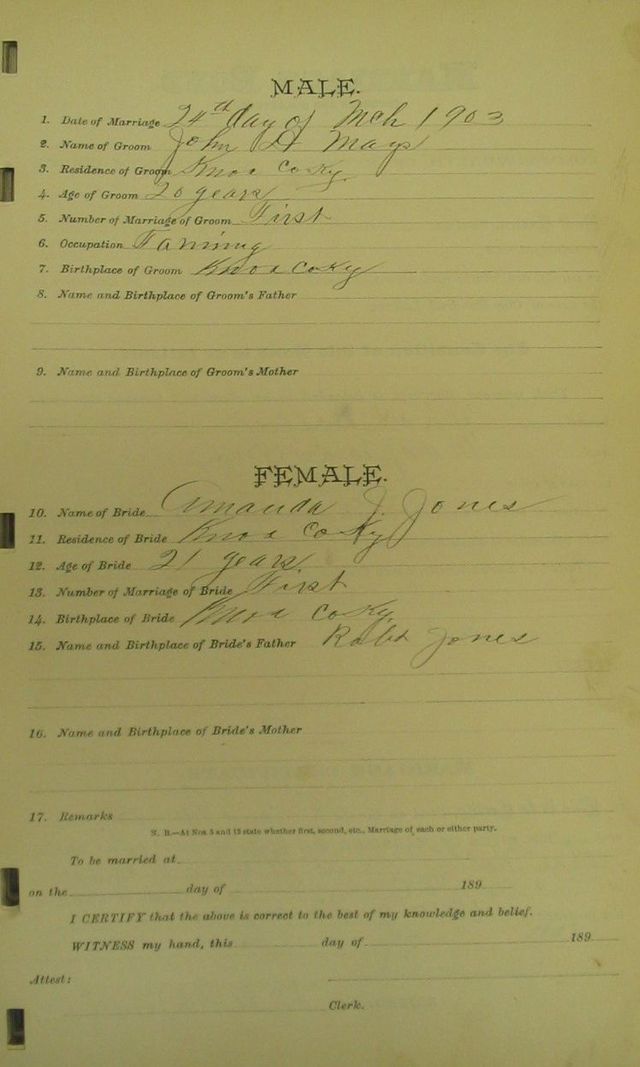 MALE.
1. Date of Marriage 24th day of Mch 1903
2. Name of Groom John D Mays
3. Residence of Groom Knox Co Ky.
4. Age of Groom 20 years
5. Number of Marriage of Groom First
6. Occupation Farming
7. Birthplace of Groom Knox Co Ky
8. Name and Birthplace of Groom's Father
9. Name and Birthplace of Groom's Mother
FEMALE.
10. Name of Bride Amanda J. Jones
11. Residence of Bride Knox Co Ky
12. Age of Bride 21 years.
13. Number of Marriage of Bride First
14. Birthplace of Bride Knox Co Ky.
15. Name and Birthplace of Bride's Father Robt Jones
16. Name and Birthplace of Bride's Mother
17. Remarks
N. B.—At Nos 5 and 13 state whether first, second, etc., Marriage of each or either party.
To be married at
on the day of 189
I CERTIFY that the above is correct to the best of my knowledge and belief.
WITNESS my hand, this day of 189
Attest:
Clerk.